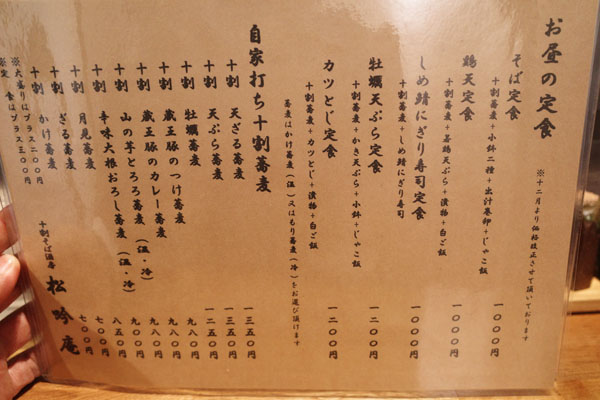 お昼の定食
※十二月より価格改正させて頂いております
そば定食
十割蕎麦+小鉢二種+出汁巻卵+じゃこ飯
一〇〇〇円
鶏天定食
十割蕎麦+若鶏天ぷら+漬物+白ご飯
一〇〇〇円
しめ鯖にぎり寿司定食
十割蕎麦+しめ鯖にぎり寿司
一〇〇〇円
牡蠣天ぷら定食
十割蕎麦+かき天ぷら+小鉢+じゃこ飯
一二〇〇円
カツとじ定食
十割蕎麦+カツとじ+漬物+白ご飯
一二〇〇円
蕎麦はかけ蕎麦(温)又はもり蕎麦(冷)をお選び頂けます
自家打ち十割蕎麦
十割 天ざる蕎麦 一三五〇円
十割 天ぷら蕎麦 一三五〇円
十割 牡蠣蕎麦 一二五〇円
十割 蔵王豚のつけ蕎麦 九八〇円
十割 蔵王豚のカレー蕎麦 九八〇円
十割 山の芋とろろ蕎麦(温・冷) 九八〇円
十割 辛味大根おろし蕎麦(温・冷) 八五〇円
十割 月見蕎麦 七〇〇円
十割 ざる蕎麦 七〇〇円
十割 かけ蕎麦
※大盛りはプラス二〇〇円
※定食はプラス三〇〇円
十割そば酒房 松吟庵